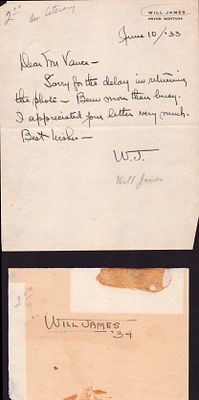 2.00
Am. Literary
WILL JAMES
PRYOR MONTANA
June 10/'33
Dear Mr Vance –
Sorry for the delay in returning
the photo – Been more than busy.
I appreciated your letter very much.
Best Wishes –
W.J.
Will James
2.50
WILL JAMES
'34